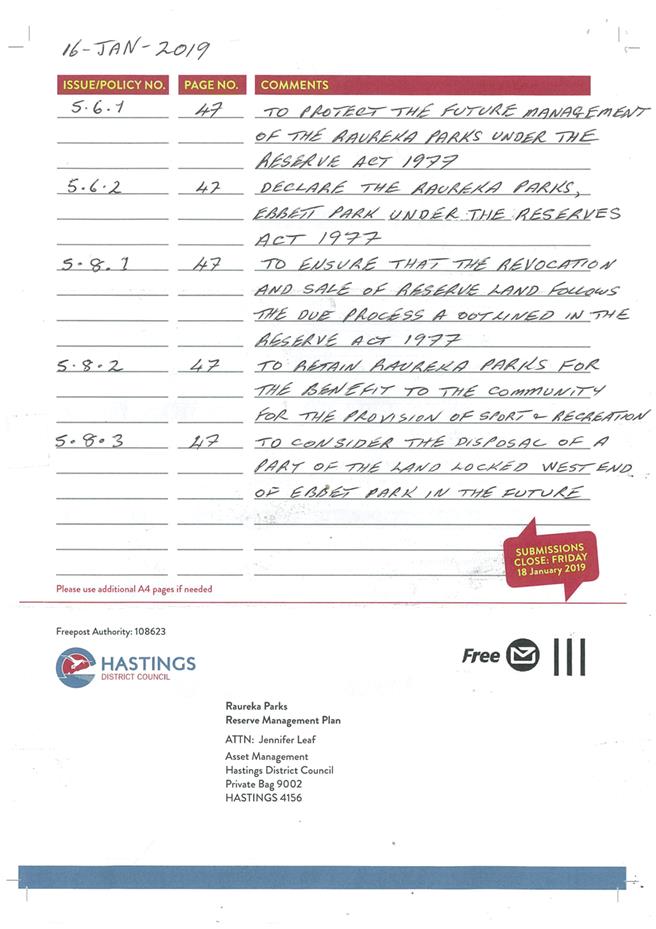 16-JAN-2019
ISSUE/POLICY NO. PAGE NO. COMMENTS
5.6.1 47 TO PROTECT THE FUTURE MANAGEMENT
OF THE RAUREKA PARKS UNDER THE
RESERVE ACT 1977
5.6.2 47 DECLARE THE RAUREKA PARKS,
EBBETT PARK UNDER THE RESERVES
ACT 1977
5.8.1 47 TO ENSURE THAT THE REVOCATION
AND SALE OF RESERVE LAND FOLLOWS
THE DUE PROCESS A OOTLINED IN THE
RESERVE ACT 1977
5.8.2 47 TO RETAIN RAUREKA PARKS FOR
THE BENEFIT TO THE COMMUNITY
FOR THE PROVISION OF SPORT & RECREATION
5.8.3 47 TO CONSIDER THE DISPOSAL OF A
PART OF THE LAND LOCKED WEST END
OF EBBET PARK IN THE FUTURE
SUBMISSIONS
CLOSE: FRIDAY
18 January 2019
Please use additional A4 pages if needed
Freepost Authority: 108623
HASTINGS
DISTRICT COUNCIL
Free
Raureka Parks
Reserve Management Plan
ATTN: Jennifer Leaf
Asset Management
Hastings District Council
Private Bag 9002
HASTINGS 4156